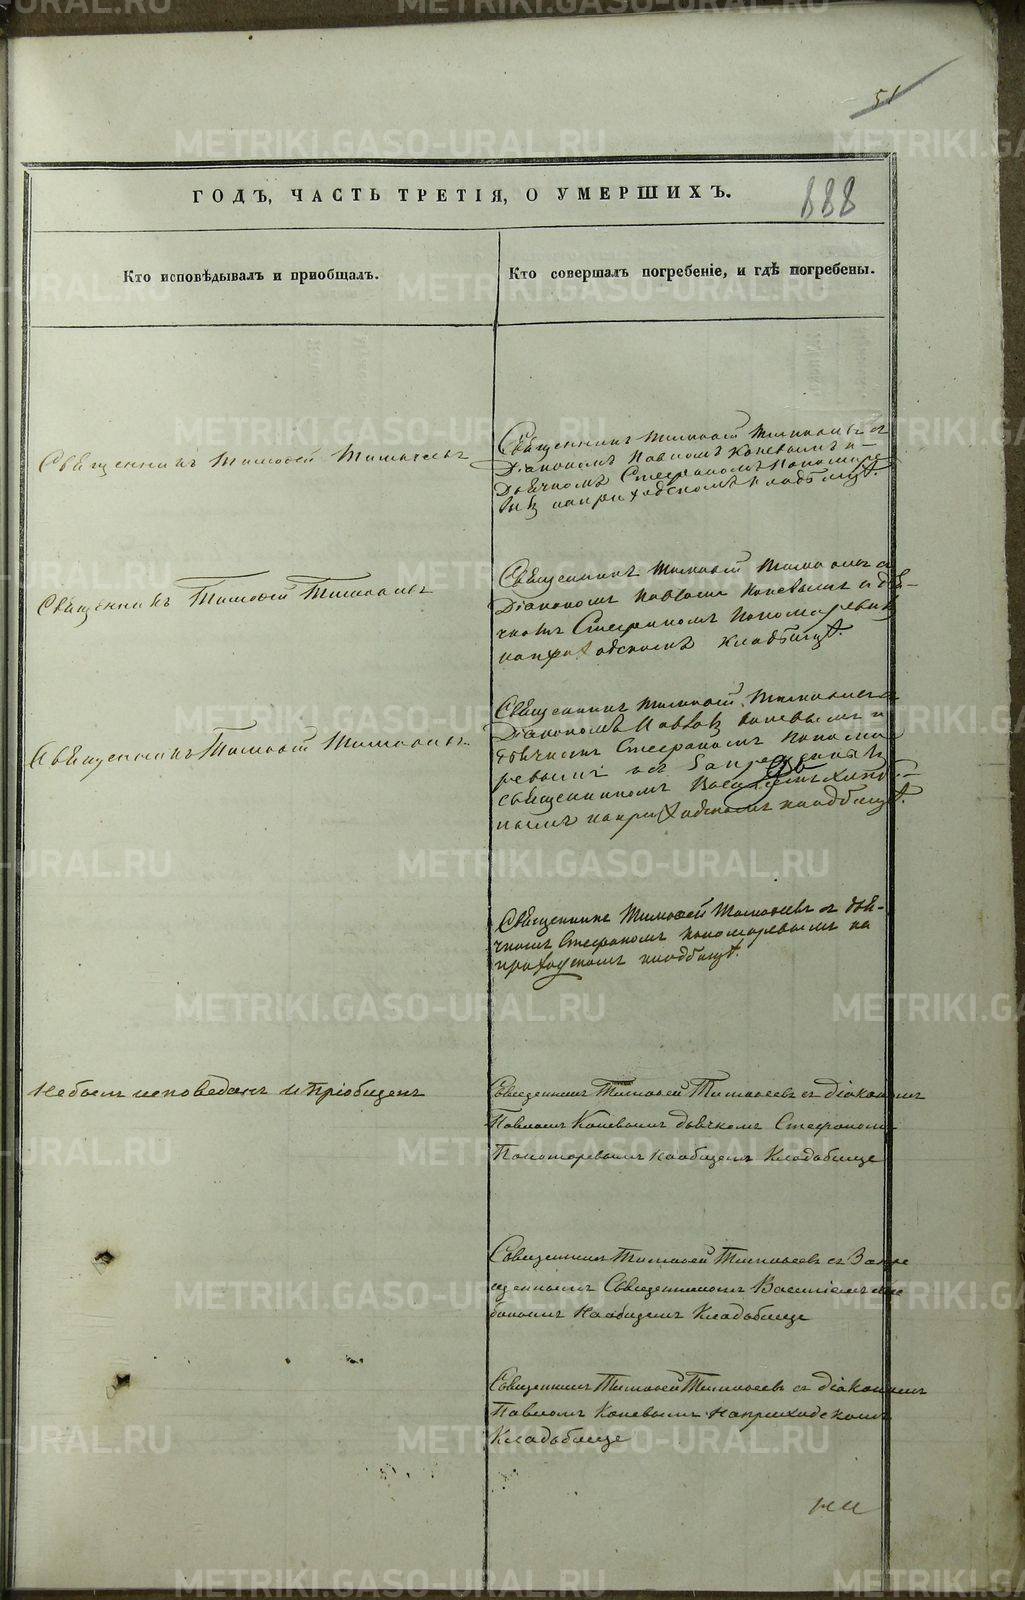 51
ГОДЪ, ЧАСТЬ ТРЕТІЯ, О УМЕРШИХЪ.
888
Кто исповѣдывалъ и пріобщалъ.
Кто совершалъ погребеніе, и гдѣ погребены.
Священникъ Тимоѳей Тимоѳеевъ
Священникъ Тимоѳей Тимоѳеевъ съ
Діакономъ Павломъ Коневымъ и
Дьячкомъ Стефаномъ Пономаре
вымъ наприходскомъ кладбищѣ.
Священникъ Тимоѳей Тимоѳеевъ
Священникъ Тимоѳей Тимоѳеевъ съ
Діакономъ Павломъ Коневымъ и дья-
чкомъ Стефаномъ Пономаревымъ
наприходскомъ кладбищѣ.
Священникъ Тимоѳей Тимоѳеевъ
Священникъ Тимоѳей Тимоѳеевъ съ
Діакономъ Павломъ Коневымъ и
дьячкомъ Стефаномъ Понома
ревымъ съ Запрещеннымъ
священникомъ Василіемъ
наприходскомъ кладбищѣ.
Священникъ Тимоѳей Тимоѳеевъ съ дья-
чкомъ Стефаномъ Пономаревымъ на
приходскомъ кладбищѣ.
Небылъ исповеданъ и Пріобщенъ
Священникъ Тимоѳей Тимоѳеевъ съ діакономъ
Павломъ Коневымъ дьячкомъ Стефаномъ
Пономаревымъ наобщемъ Кладбище
Священникъ Тимоѳей Тимоѳеевъ съ Запре
щеннымъ Священникомъ Василіемъ
Наобщемъ Кладбище
Священникъ Тимоѳей Тимоѳеевъ съ діакономъ
Павломъ Коневымъ Наприходскомъ
Кладбище
METRIKI.GASO-URAL.RU